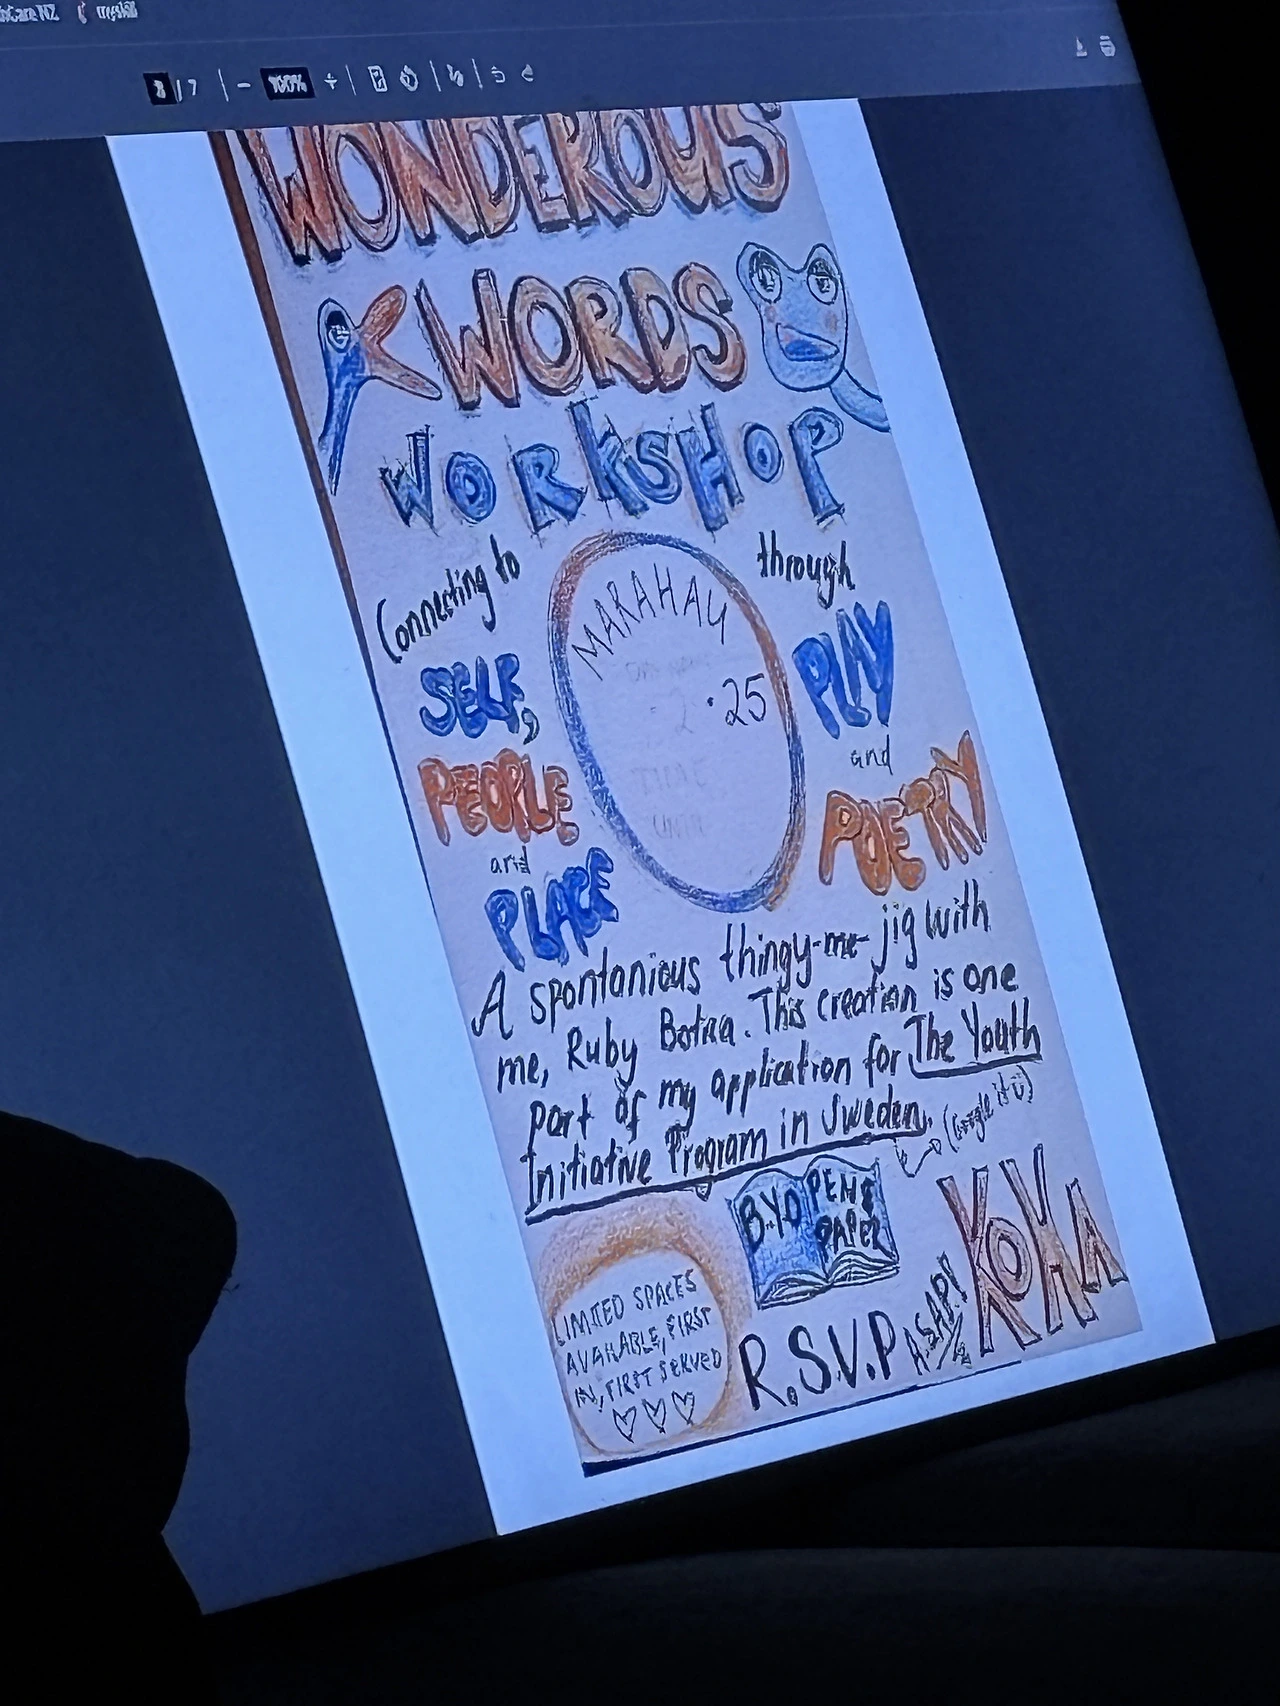 myskill
/ 7
100%
WONDEROUS
WORDS
WORKSHOP
Connecting to
SELF,
PEOPLE
and
PLACE
MARAHAU
.25
TIME
through
PLAY
and
POETRY
A spontanious thingy-me-jig with
me, Ruby. This creation is one
part of my application for The Youth
Initiative Program in Sweden.
(Google it ü)
B.Y.O PENS
PAPER
KOHA
LIMITED SPACES
AVAILABLE, FIRST
IN, FIRST SERVED
R.S.V.P A.S.A.P!